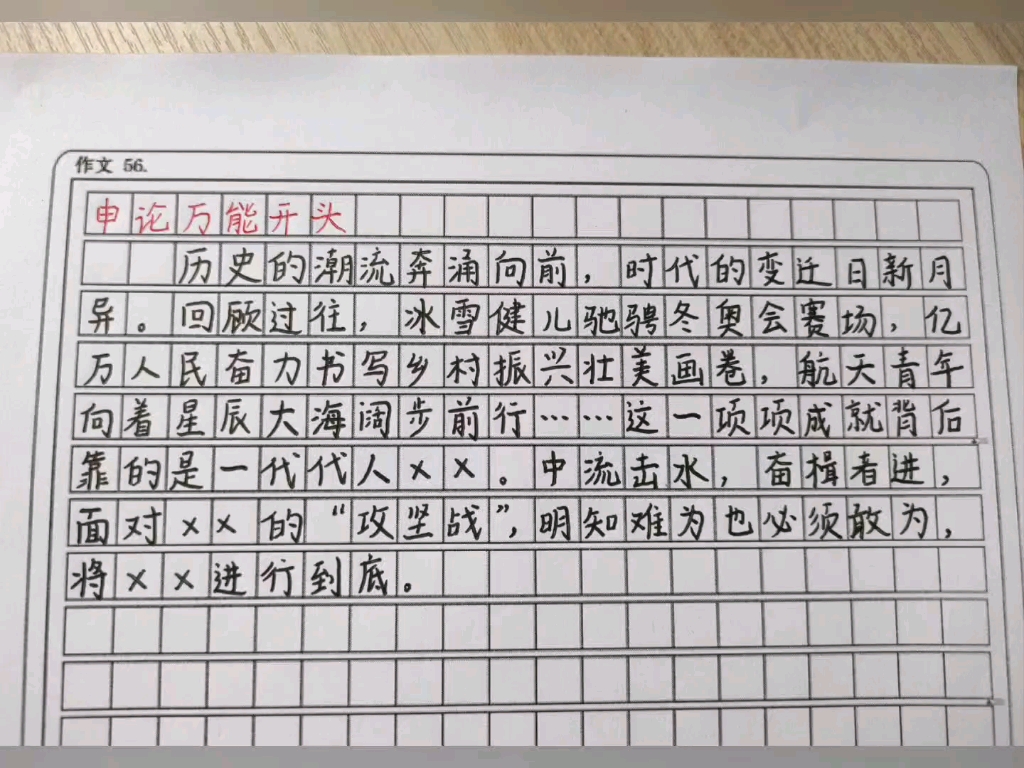 作文 56.
申论万能开头
历史的潮流奔涌向前，时代的变迁日新月
异。回顾过往，冰雪健儿驰骋冬奥会赛场，亿
万人民奋力书写乡村振兴壮美画卷，航天青年
向着星辰大海阔步前行……这一项项成就背后
靠的是一代代人××。中流击水，奋楫者进，
面对××的“攻坚战”，明知难为也必须敢为，
将××进行到底。